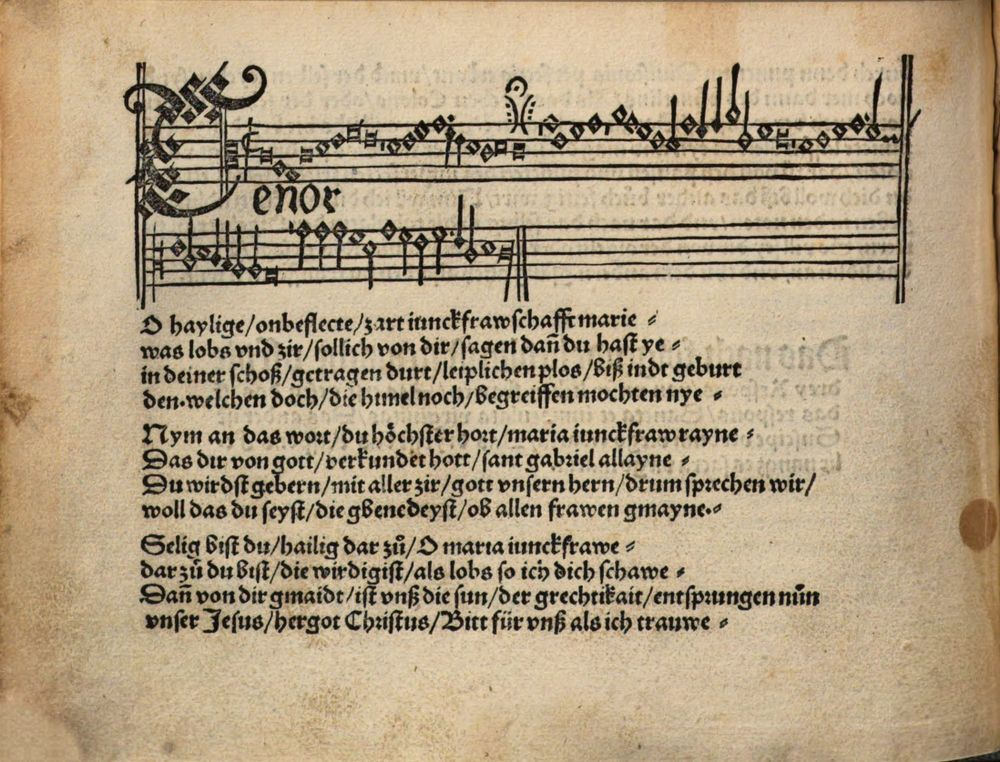 Tenor
O haylige/onbeflecte/zart iunckfrawschafft marie ⸗
was lobs vnd zir/sollich von dir/sagen dañ du hast ye ⸗
in deiner schoß/getragen durt/leiplichen plos/biß indt geburt
den.welchen doch/die himel noch/begreiffen mochten nye ⸗
Nym an das wort/du höchster hort/maria iunckfraw rayne ⸗
Das dir von gott/verkundet hott/sant gabriel allayne ⸗
Du wirdst gebern/mit aller zir/gott vnsern hern/drum sprechen wir/
woll das du seyst/die gbenedeyst/ob allen frawen gmayne.⸗
Selig bist du/hailig dar zů/O maria iunckfrawe ⸗
dar zů du bist/die wirdigist/als lobs so ich dich schawe ⸗
Dañ von dir gmaidt/ist vnß die sun/der grechtikait/entsprungen nůn
vnser Jesus/hergot Christus/Bitt für vnß als ich trauwe ⸗